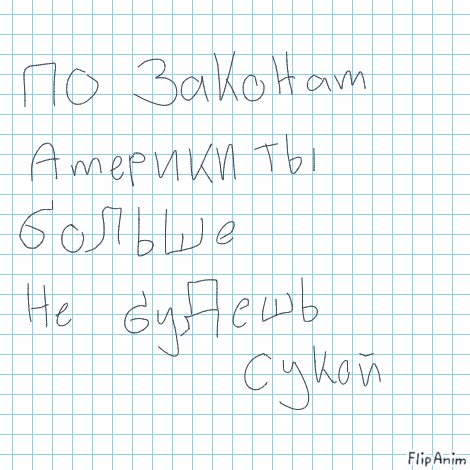 По Законам
Америки ты
больше
Не будешь
сукой
FlipAnim